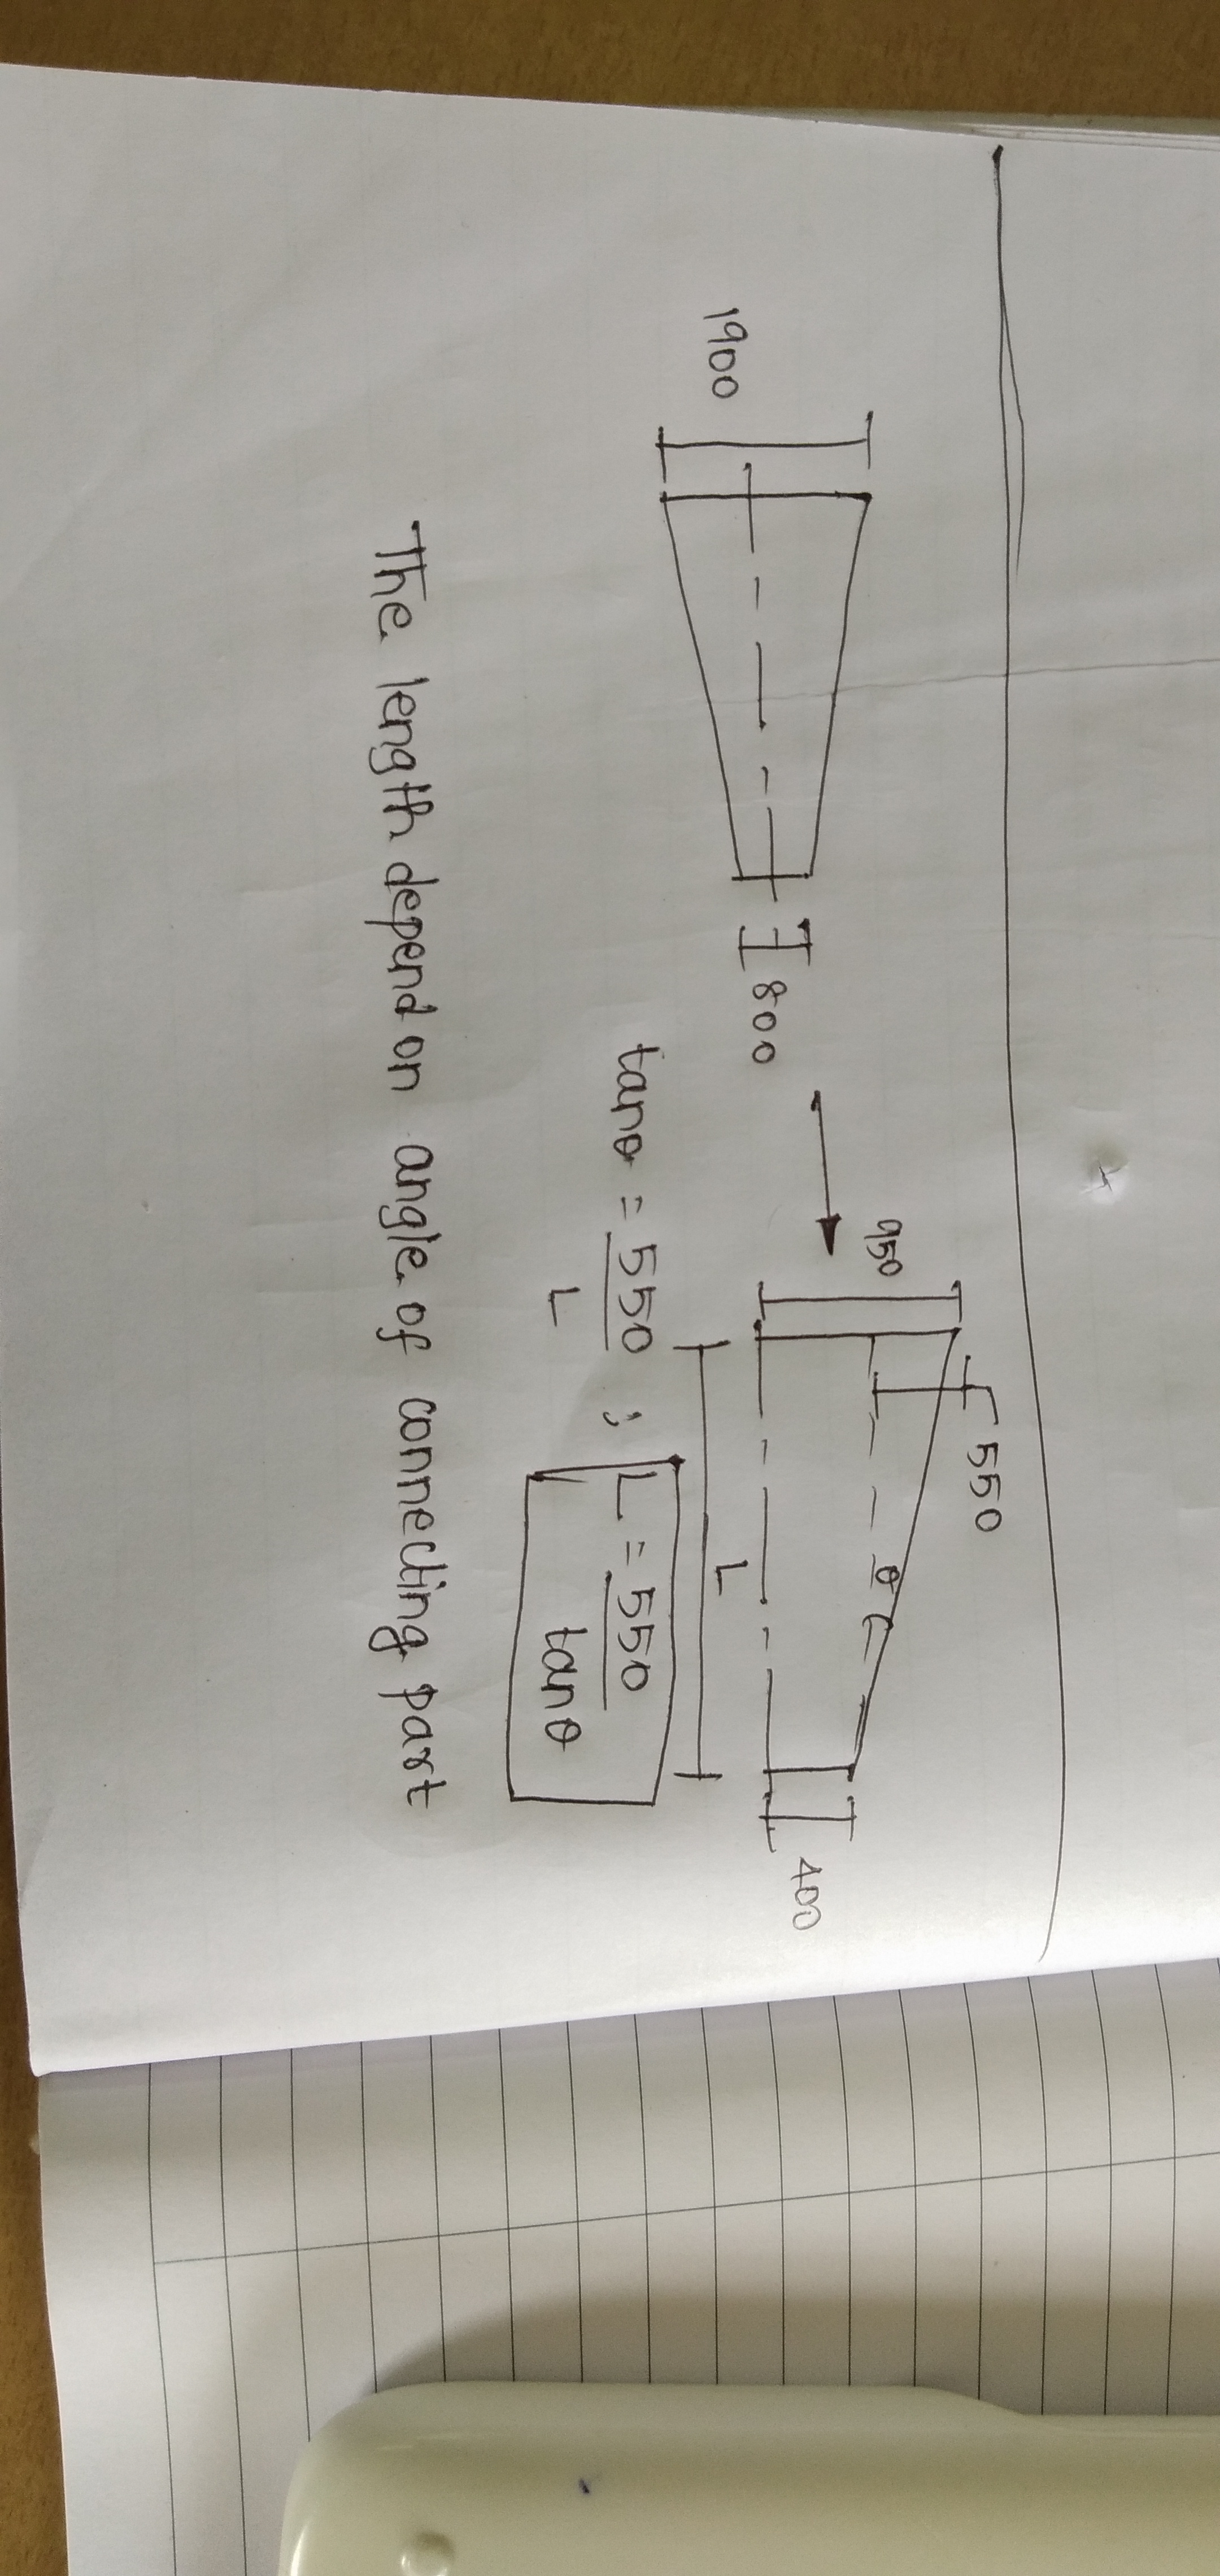 1900
800
950
550
θ
400
L
tanθ = 550 / L ; L = 550 / tanθ
The length depend on angle of connecting part